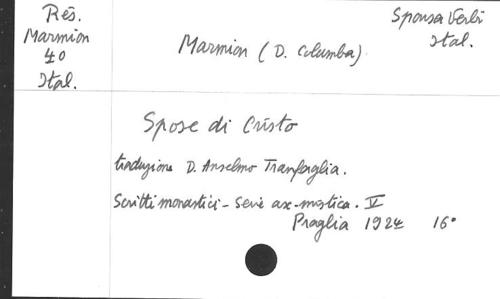 Rés.
Marmion
40
Ital.
Marmion (D. Columba)
Sponsa Verbi
Ital.
Spose di Cristo
traduzione D. Anselmo Tranfaglia.
Scritti monastici - Serie asc-mistica. V
Praglia 1924 16°